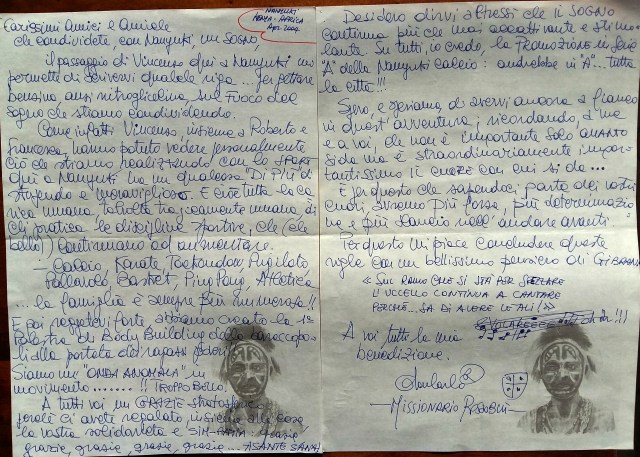 NANYUKI
KENYA - AFRICA
Apr. 2004
Carissimi Amici e Amiche
che condividete, con Nanyuki, un SOGNO,
il passaggio di Vincenzo qui a Nanyuki mi
permette di scrivervi qualche riga... per gettare
benzina, anzi nitroglicerina, sul FUOCO del
sogno che stiamo condividendo.
Come infatti Vincenzo, insieme a Roberto e
Francesca, hanno potuto vedere personalmente
ciò che stiamo realizzando con lo SPORT
qui a Nanyuki ha un qualcosa "DI PIÙ" di
stupendo e meraviglioso. E cioè tutta la ca=
rica umana, talvolta tragicamente umana, di
chi pratica le discipline sportive, che (che
bello!) continuano ad aumentare.
- Calcio, Karate, Taekondow, Pugilato
Pallavolo, Basket, Ping Pong, Atletica
... la famiglia è sempre più numerosa!!
E poi
abbiamo creato la 1ª
Palestra di Body Building della
alla portata dei ragazzi poveri
Siamo un "ONDA ANOMALA" in
movimento ....... !! TROPPO BELLO!
A tutti voi un GRAZIE
perché ci avete regalato, insieme alle cose
la vostra solidarietà e SIM-PATIA: grazie,
grazie, grazie, grazie, grazie... ASANTE SANA
Desidero dirvi altresì che il SOGNO
continua più che mai accattivante e stimo=
lante. Su tutti, io credo, la promozione in Serie
"A" della Nanyuki calcio: andrebbe in "A"... tutta
la città!!!
Spero, e speriamo, di avervi ancora a fianco
in quest'avventura; ricordando, a me
e a voi, che non è importante solo QUANTO
si da ma è straordinariamente impor=
tantissimo il CUORE con cui si da...
È per questo che sapendoci parte dei vostri
cuori, avremo più forza, più determinazio
ne e più slancio nell'andare avanti.
Per questo mi piace concludere queste
righe con un bellissimo pensiero di GIBRAN
« SUL RAMO CHE SI STÀ PER SPEZZARE
L'UCCELLO CONTINUA A CANTARE
PERCHÈ... SA DI AVERE LE ALI! »
VOLAREEEE
A voi tutti la mia
benedizione.
- MISSIONARIO